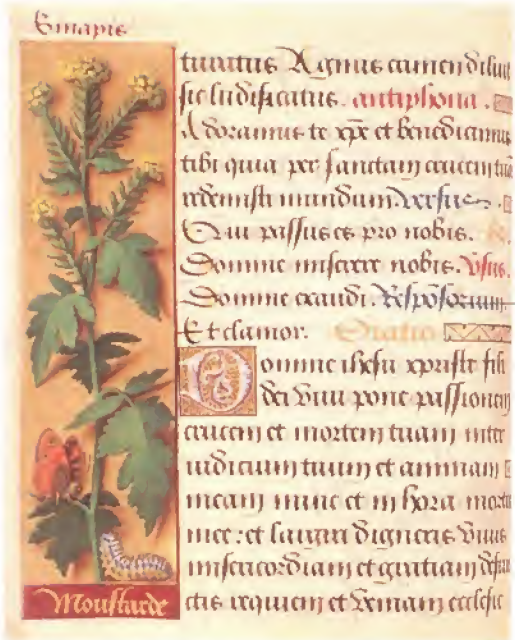 Sinapis
turatus Agnus crimen diluit
sic ludificatus. antiphona.
Adoramus te xpe et benedicimus
tibi quia per sanctam crucem tuā
redemisti mundum. Versus.
Qui passus es pro nobis.
Domine miserere nobis. Vsus.
Domine exaudi. Responsorium.
Et clamor. Oratio
Domine ihesu xpriste fili
dei viui pone passionem
crucem et mortem tuam inter
iudicium tuum et animam
meam nunc et in hora
mee: et largiri digneris viuis
misericordiam et gratiam defun
ctis requiem et veniam ecclesie
Moustarde